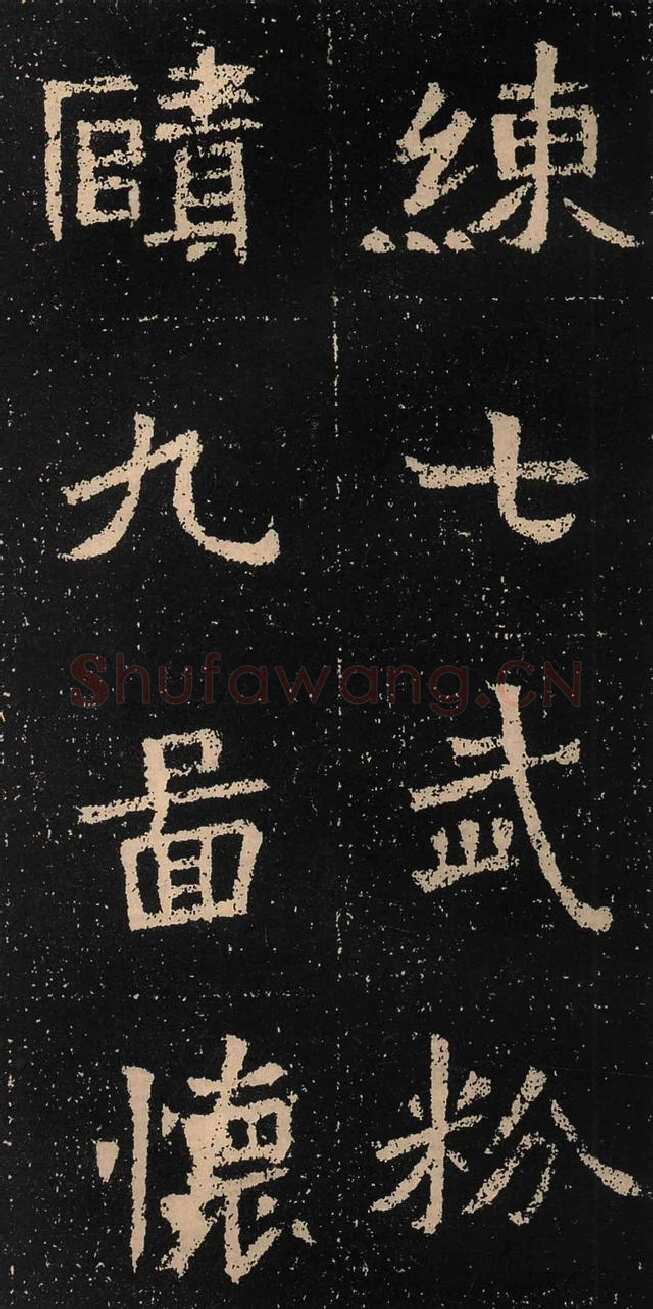 練七武粉
賾九啚懷
Shufawang.CN